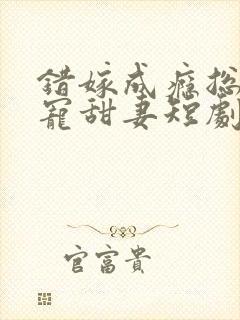 錯嫁成癮總
寵甜妻短劇
官富貴